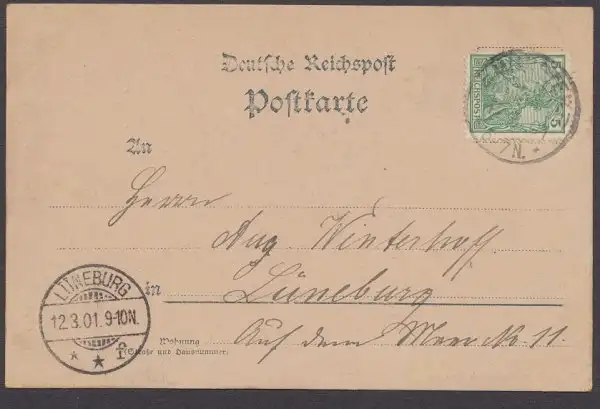 Deutsche Reichspost
Postkarte
5
REICHSPOST
N.
An
Herrn
Aug. Winterhoff
in Lüneburg
LÜNEBURG
12.3.01. 9-10N.
* * f
Wohnung
(Straße und Hausnummer)
Auf dem Meer N. 11.